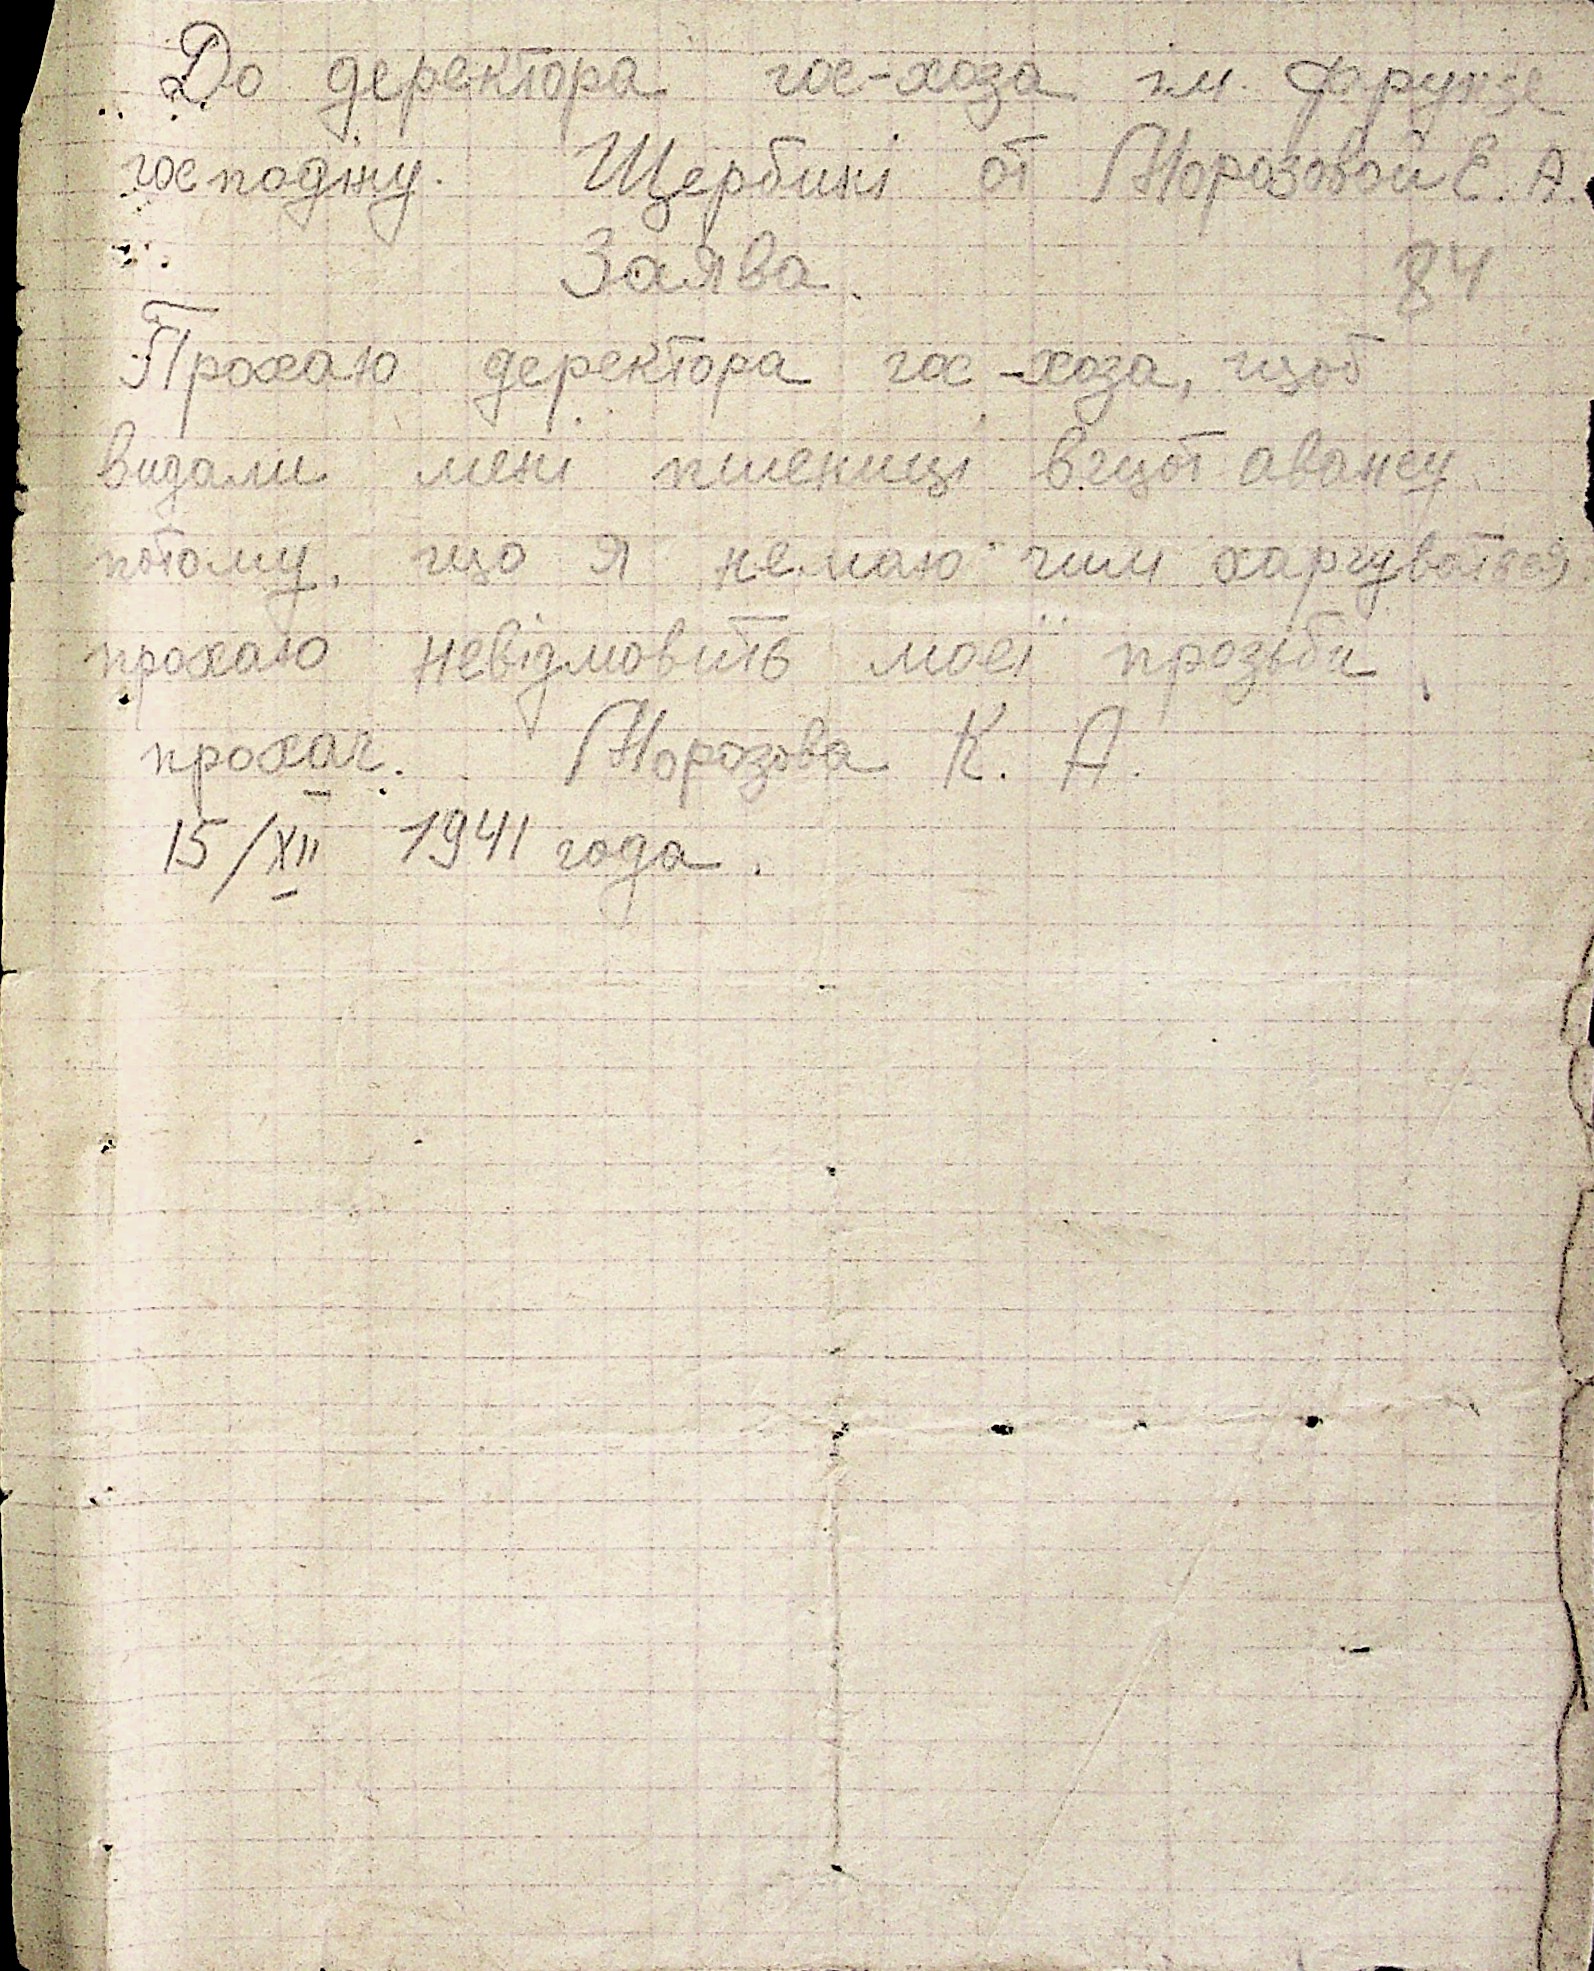 До деректора гос-хоза ім. Фрунзе
господіну. Щербині от Морозовой Е. А.
Заява. 84
Прохаю деректора гос-хоза, щоб
видали мені пшениці вщот авансу
потому, що я немаю чим харчуваться
прохаю невідмовить моєї прозьби
прохач. Морозова К. А.
15/XII 1941 года.